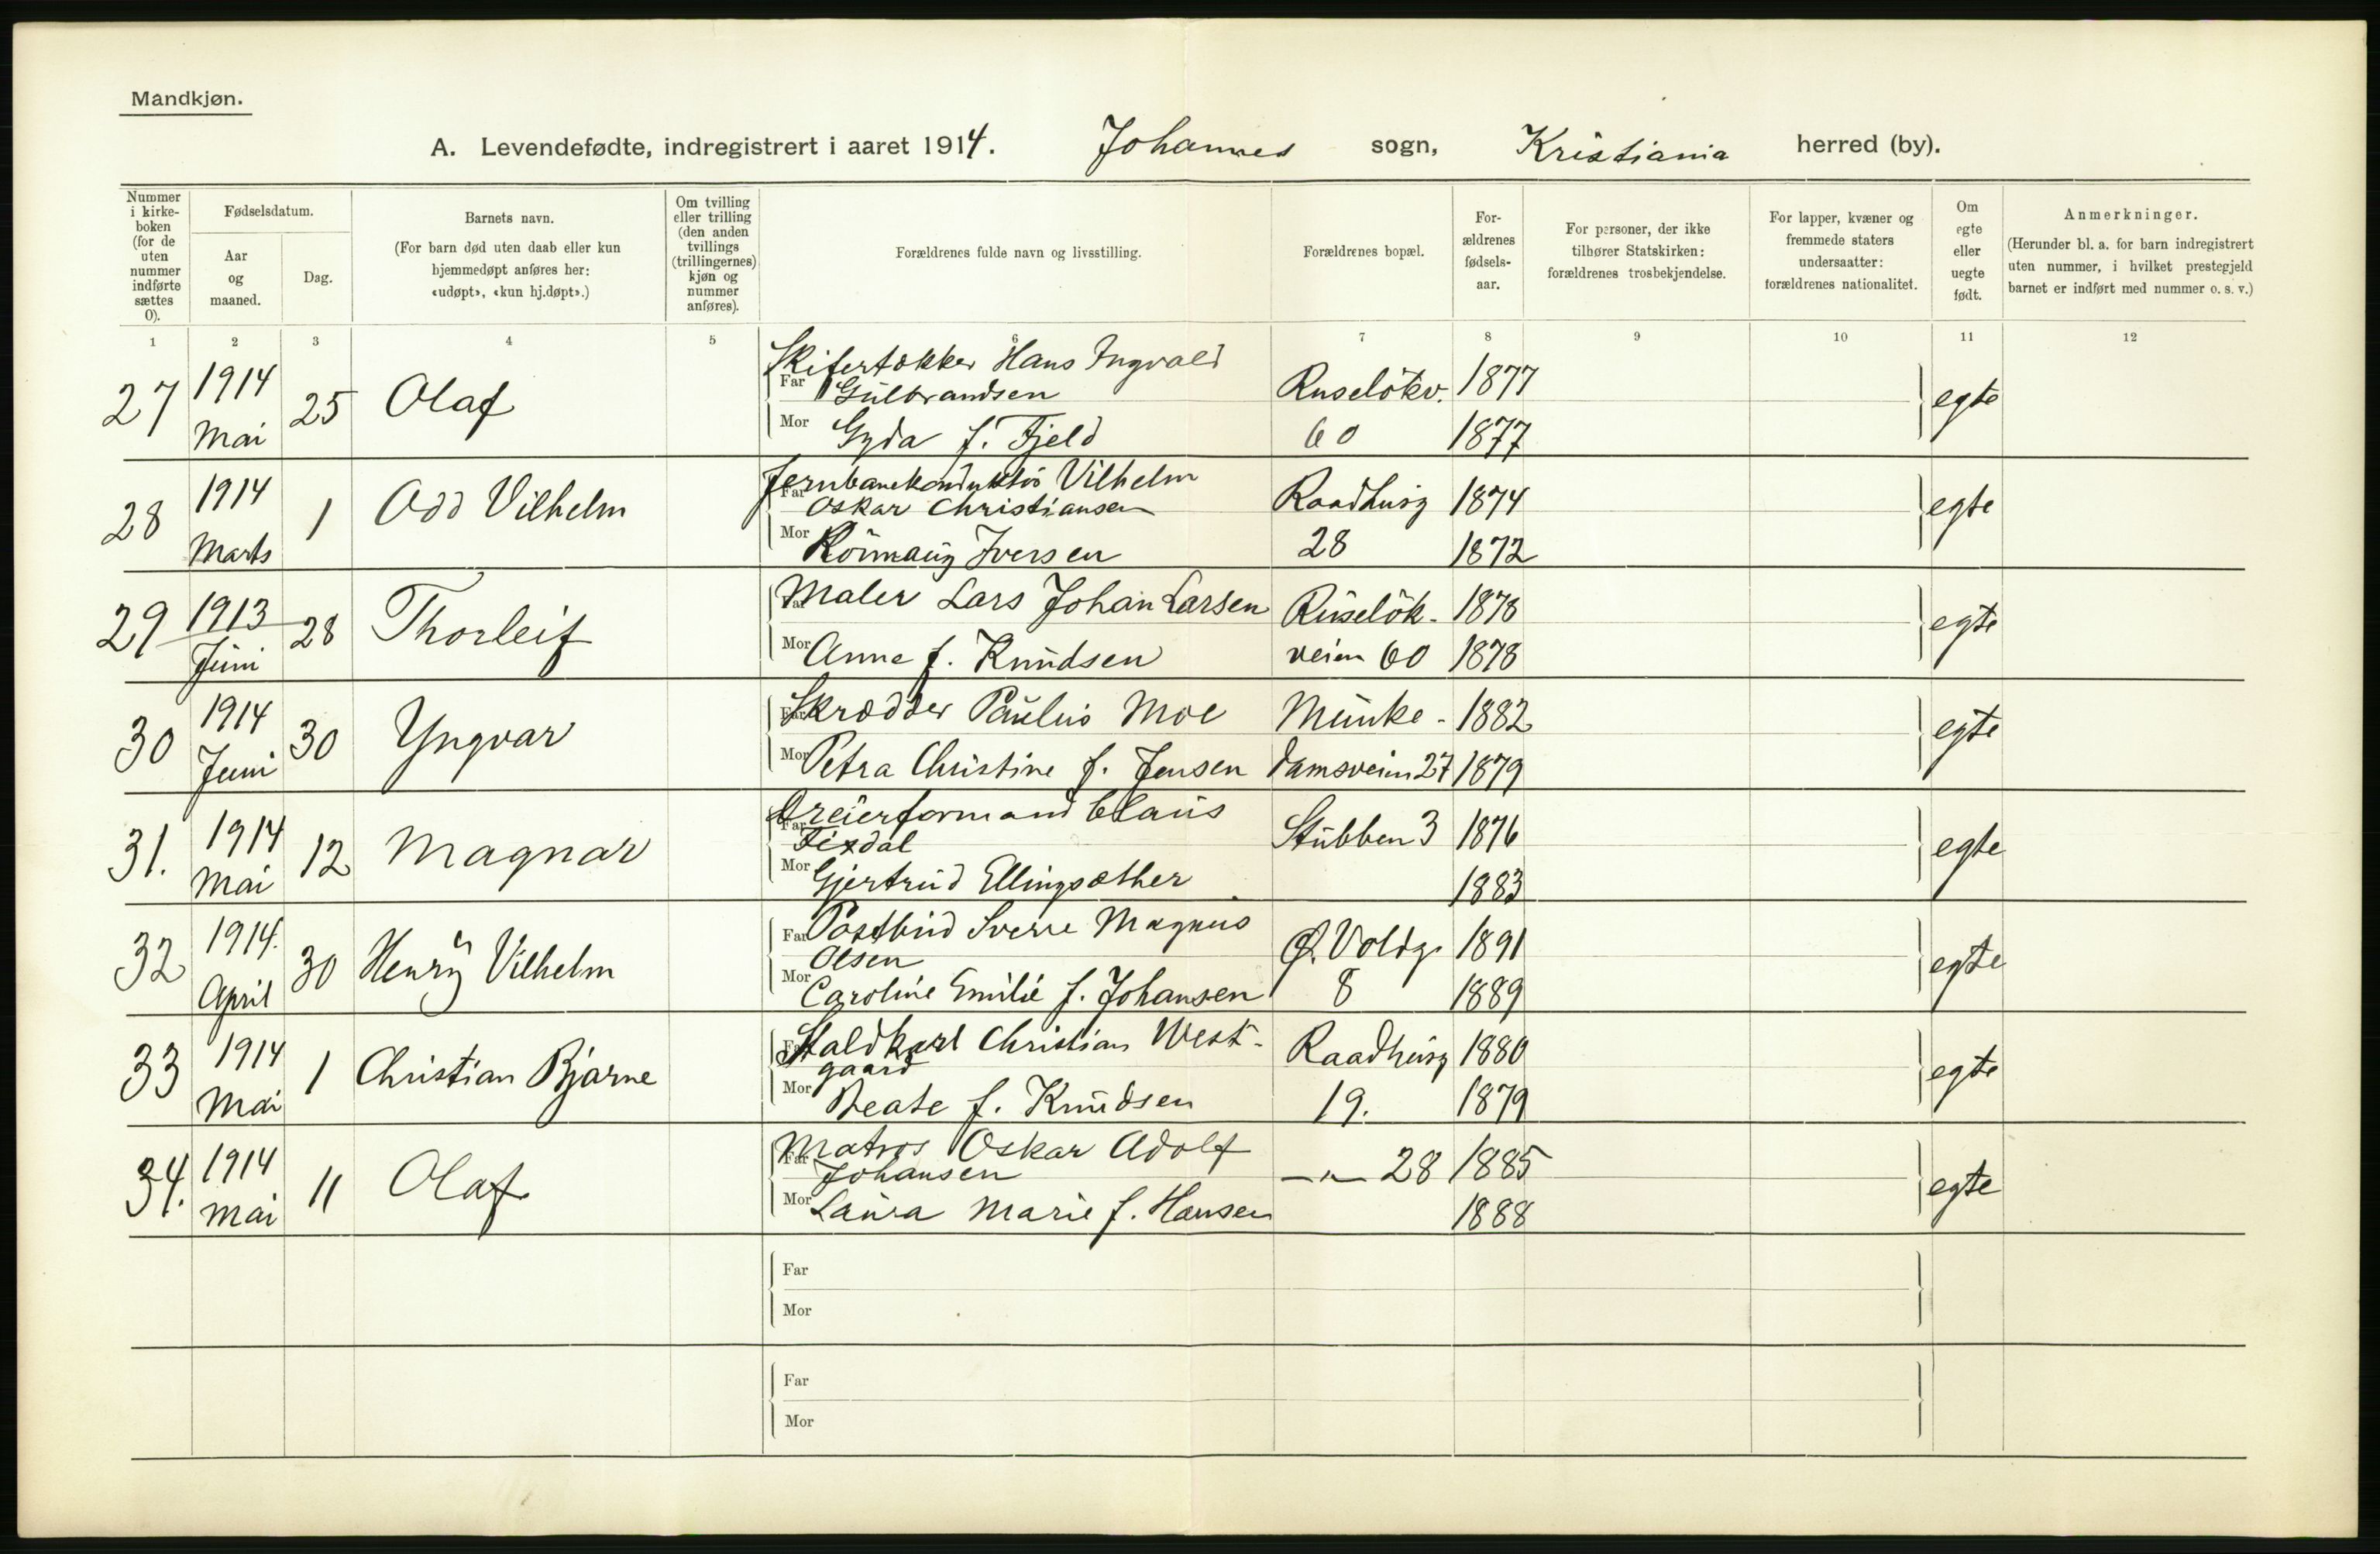 Mandkjøn.
A. Levendefødte, indregistrert i aaret 1914. Johannes sogn, Kristiania herred (by).
Nummer i kirke-boken (for de uten nummer indførte sættes 0).
Fødselsdatum.
Aar og maaned.
Dag.
Barnets navn.
(For barn død uten daab eller kun hjemmedøpt anføres her: «udøpt», «kun hj.døpt».)
Om tvilling eller trilling (den anden tvillings (trillingernes) kjøn og nummer anføres).
Forældrenes fulde navn og livsstilling.
Forældrenes bopæl.
For-ældrenes fødsels-aar.
For personer, der ikke tilhører Statskirken: forældrenes trosbekjendelse.
For lapper, kvæner og fremmede staters undersaatter: forældrenes nationalitet.
Om egte eller uegte født.
Anmerkninger.
(Herunder bl. a. for barn indregistrert uten nummer, i hvilket prestegjeld barnet er indført med nummer o. s. v.)
1 2 3 4 5 6 7 8 9 10 11 12
27 1914 Mai 25 Olaf
Far Skifertækker Hans Ingvald
Gulbrandsen Ruseløkv. 1877 egte
Mor Gyda f. Fjeld 60 1877
28 1914 Marts 1 Odd Vilhelm
Far Jernbanekonduktør Vilhelm
Oskar Christiansen Raadhusg 1874 egte
Mor Iversen 28 1872
29 1913 Juni 28 Thorleif
Far Maler Lars Johan Larsen Ruseløk- 1878 egte
Mor Anne f. Knudsen veien 60 1878
30 1914 Juni 30 Yngvar
Far Skrædder Paulus Moe Munke- 1882 egte
Mor Petra Christine f. Jensen damsveien 27 1879
31. 1914 Mai 12 Magnar
Far Dreierformand Claus
Fixdal Stubben 3 1876 egte
Mor Gjertrud Ellingsæther 1883
32 1914. April 30 Henry Vilhelm
Far Postbud Sverre Magnus
Olsen Ø. Voldg. 1891 egte
Mor Caroline Emilie f. Johansen 8 1889
33 1914 Mai 1 Christian Bjarne
Far Staldkarl Christian West-
gaard Raadhusg 1880 egte
Mor Beate f. Knudsen 19. 1879
34. 1914 Mai 11 Olaf
Far Matros Oskar Adolf
Johansen —„— 28 1885 egte
Mor Laura Marie f. Hansen 1888
Far
Mor
Far
Mor